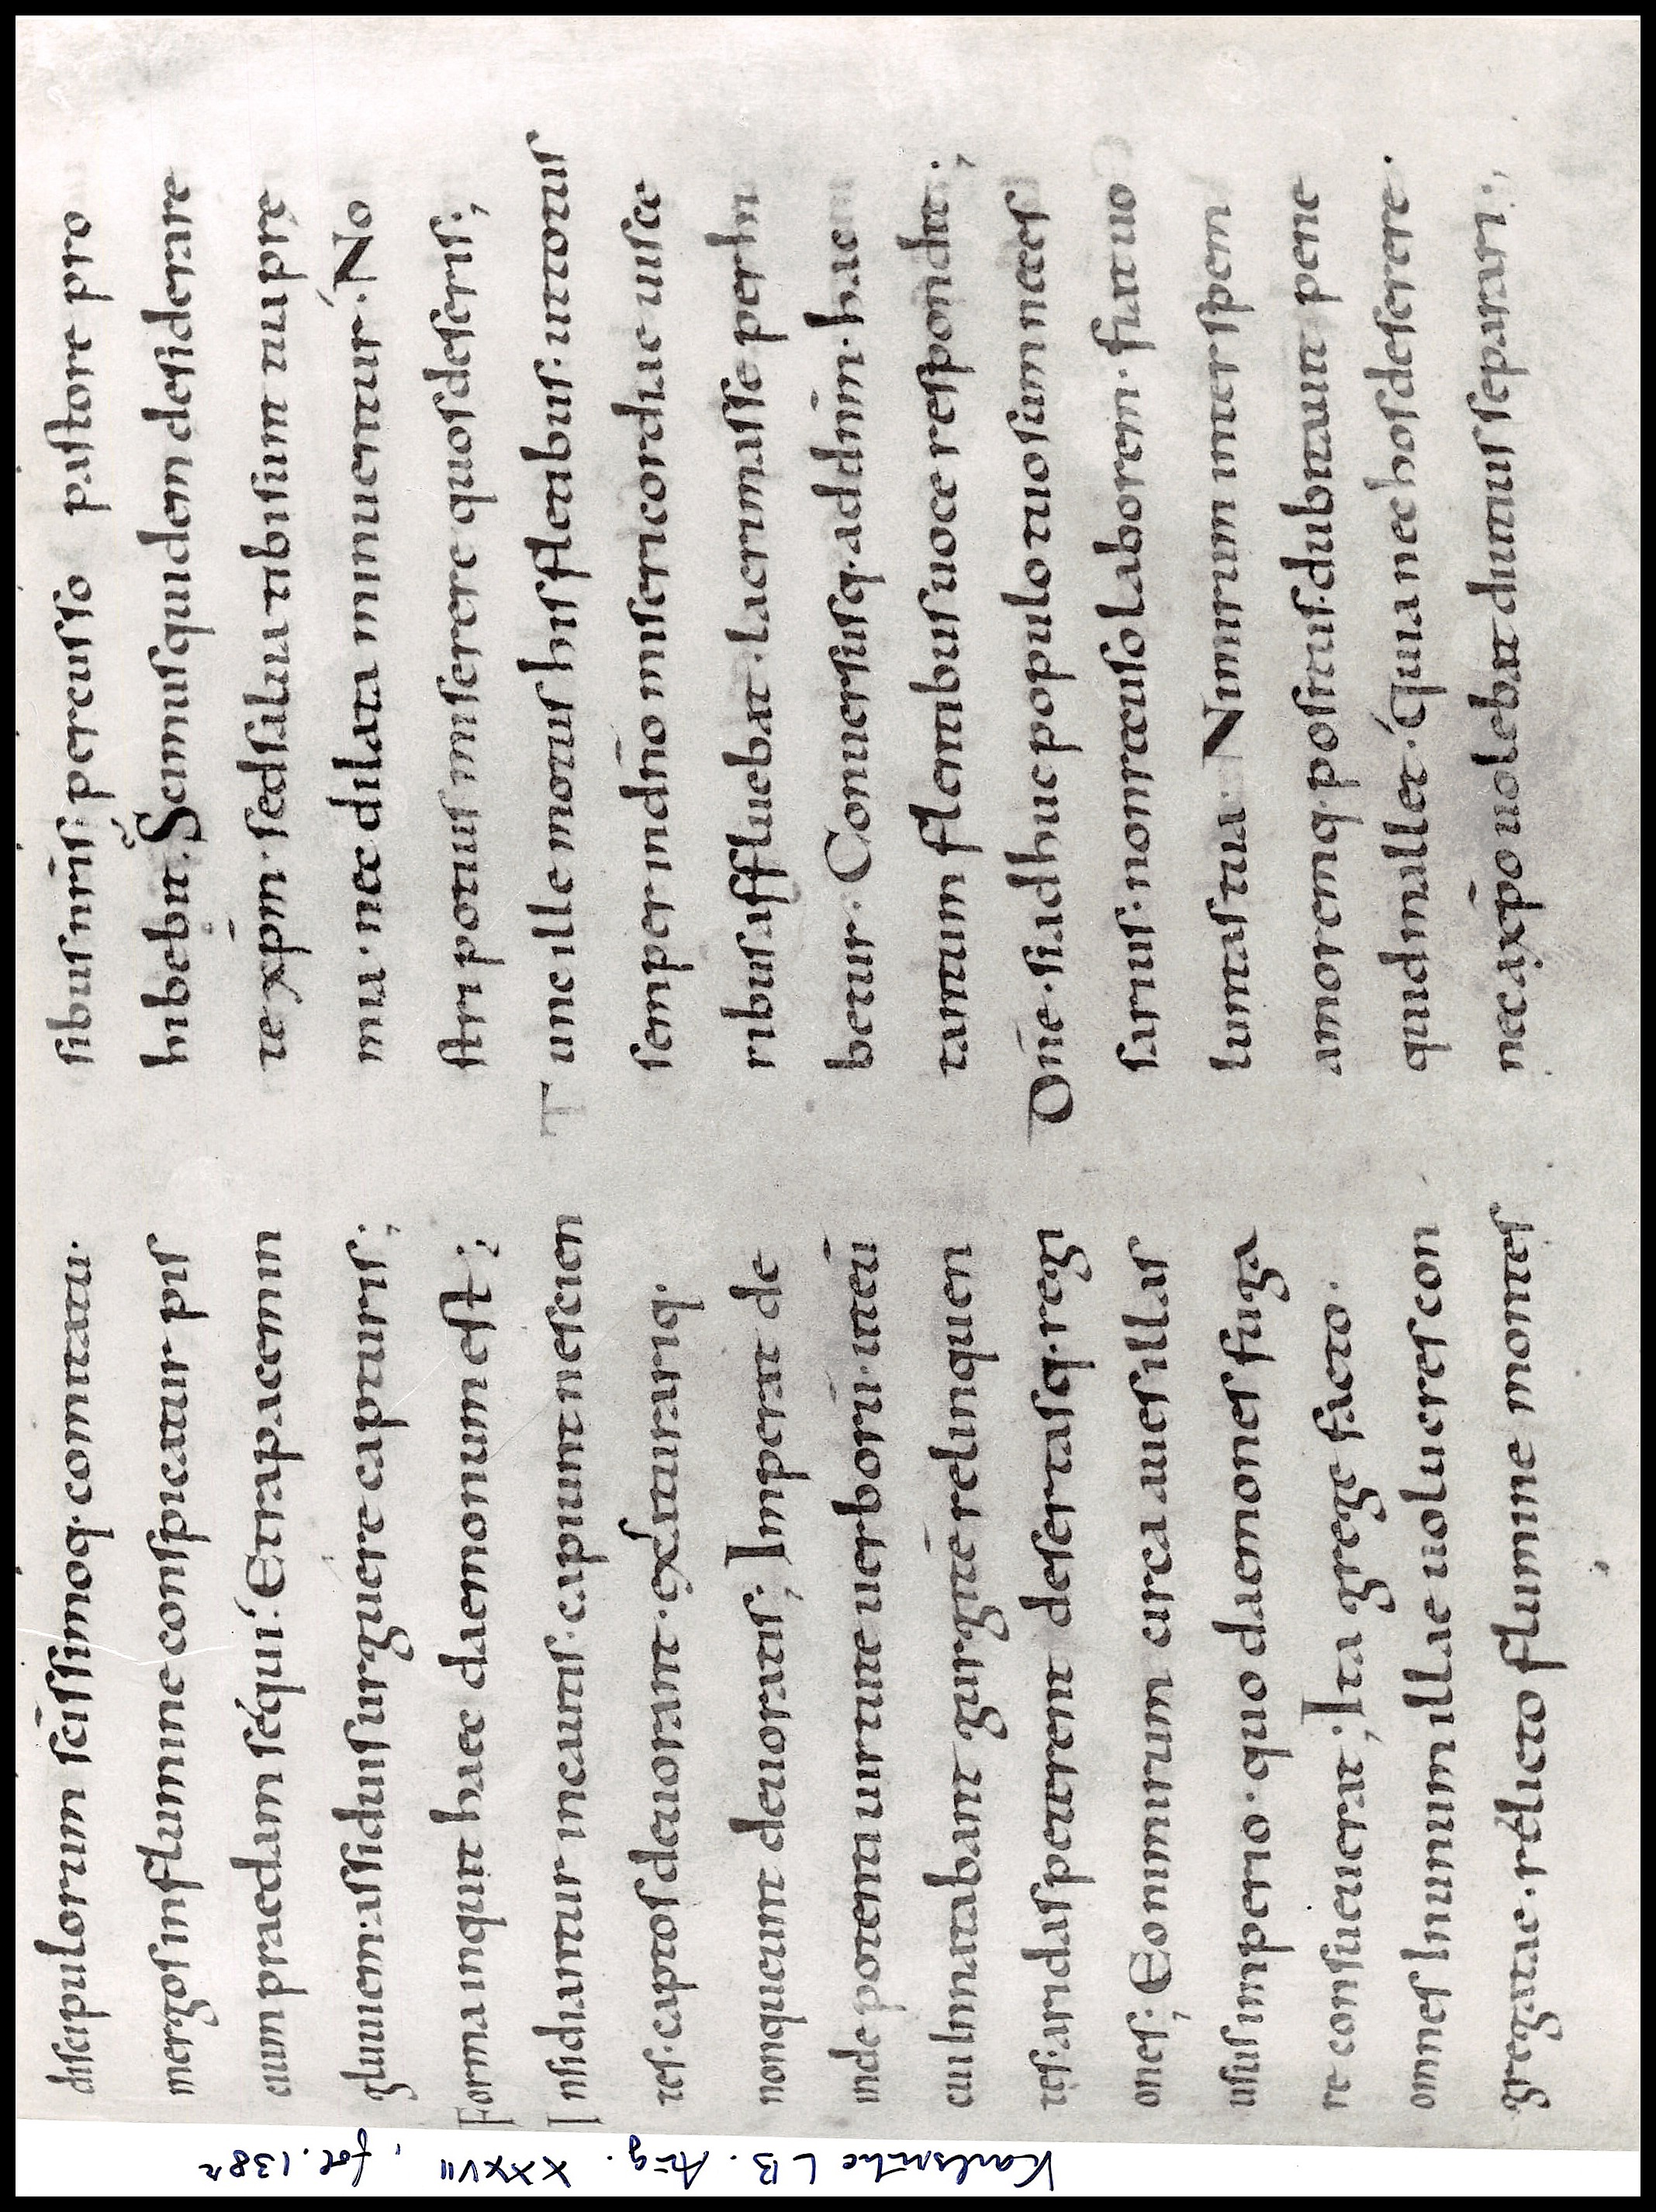 discipulorum sc̄issimoq. comitatu.
mergos in flumine conspicatur pis
cium praedam sequi. Et rapacem in
gluuiem. assiduis urguere capturis;
Forma inquit haec daemonum est;
Insidiantur incautis. capiunt nescien
tes. captos deuorant. exsaturariq.
non queunt deuoratis; Imperat de
inde potenti uirtute uerborū. ut eū
cui innatabant gurgitē relinquen
tes. aridas peterent desertasq. regi
ones; Eo nimirum circa aues illas
usus imperio. quo daemones fuga
re consueuerat; Ita grege facto.
omnes in unum illae uolucres con
gregatae. relicto flumine montes
sibus nr̄is. percusso pastore pro
hibebit. Scimus quidem desiderare
te xp̄m. sed salua tibi sunt tua prę
mia. nec dilata minuentur. No
stri potius miserere quos deseris;
Tunc ille motus his fletibus. ut totus
semper in dn̄o misericordiae uisce
ribus affluebat. lacrimasse perhi
betur. Conuersusq. ad dn̄m. hac
tantum flentibus uoce respondit;
Dn̄e. si adhuc populo tuo sum neces
sarius. non recuso laborem. fiat uo
luntas tua. Nimirum inter spem
amoremq. positus. dubitauit pene
quid mallet. Quia nec hos deserere.
nec a xp̄o uolebat diutius separari;
Karlsruhe LB. Aug. XXXVII, fol. 138r